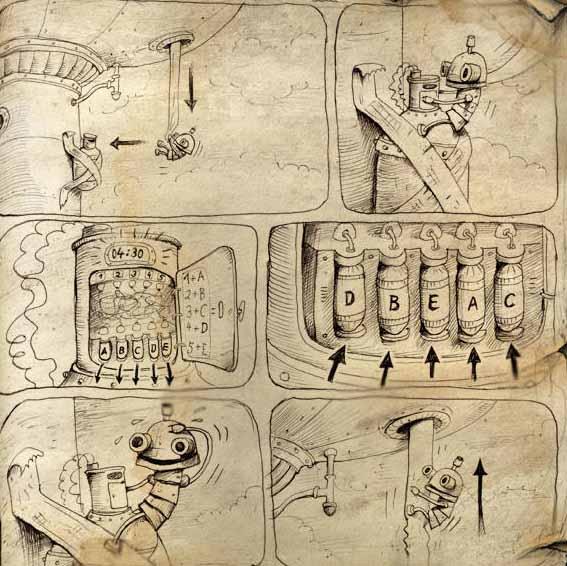 04:30
1 2 3 4
1+A
2+B
3+C
4+D
5+E
A B C D E
D B E A C